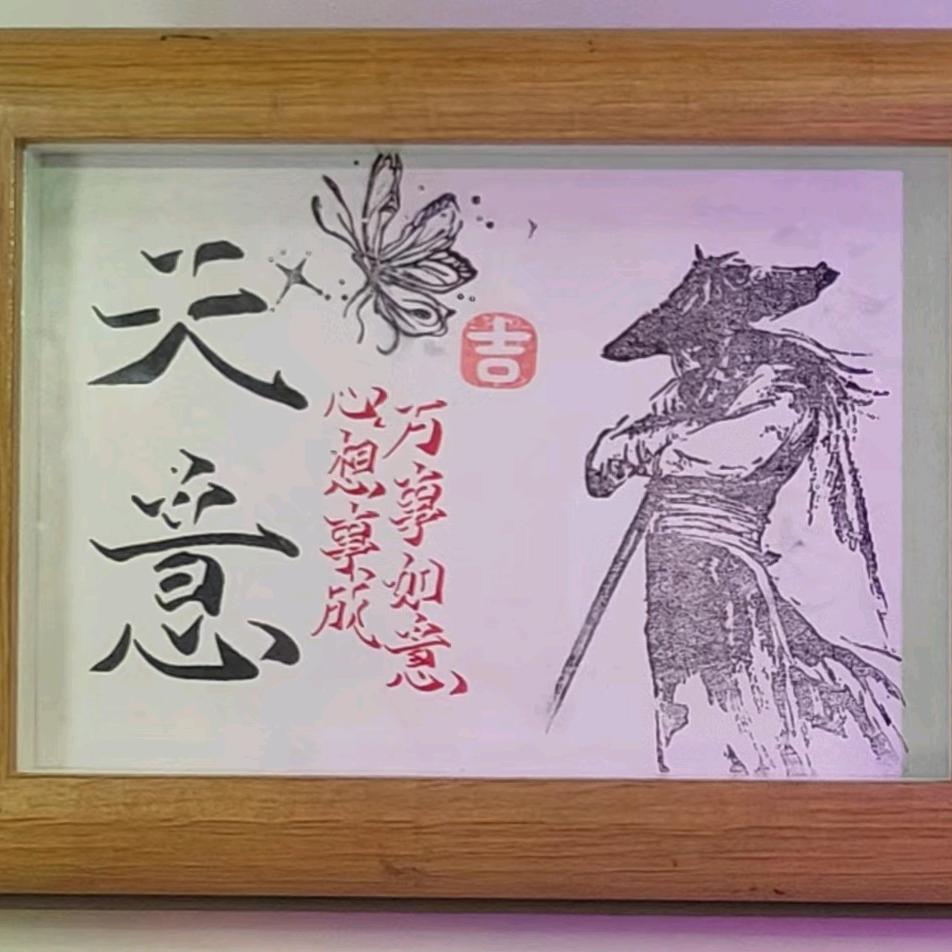 天意
吉
万事如意
心想事成